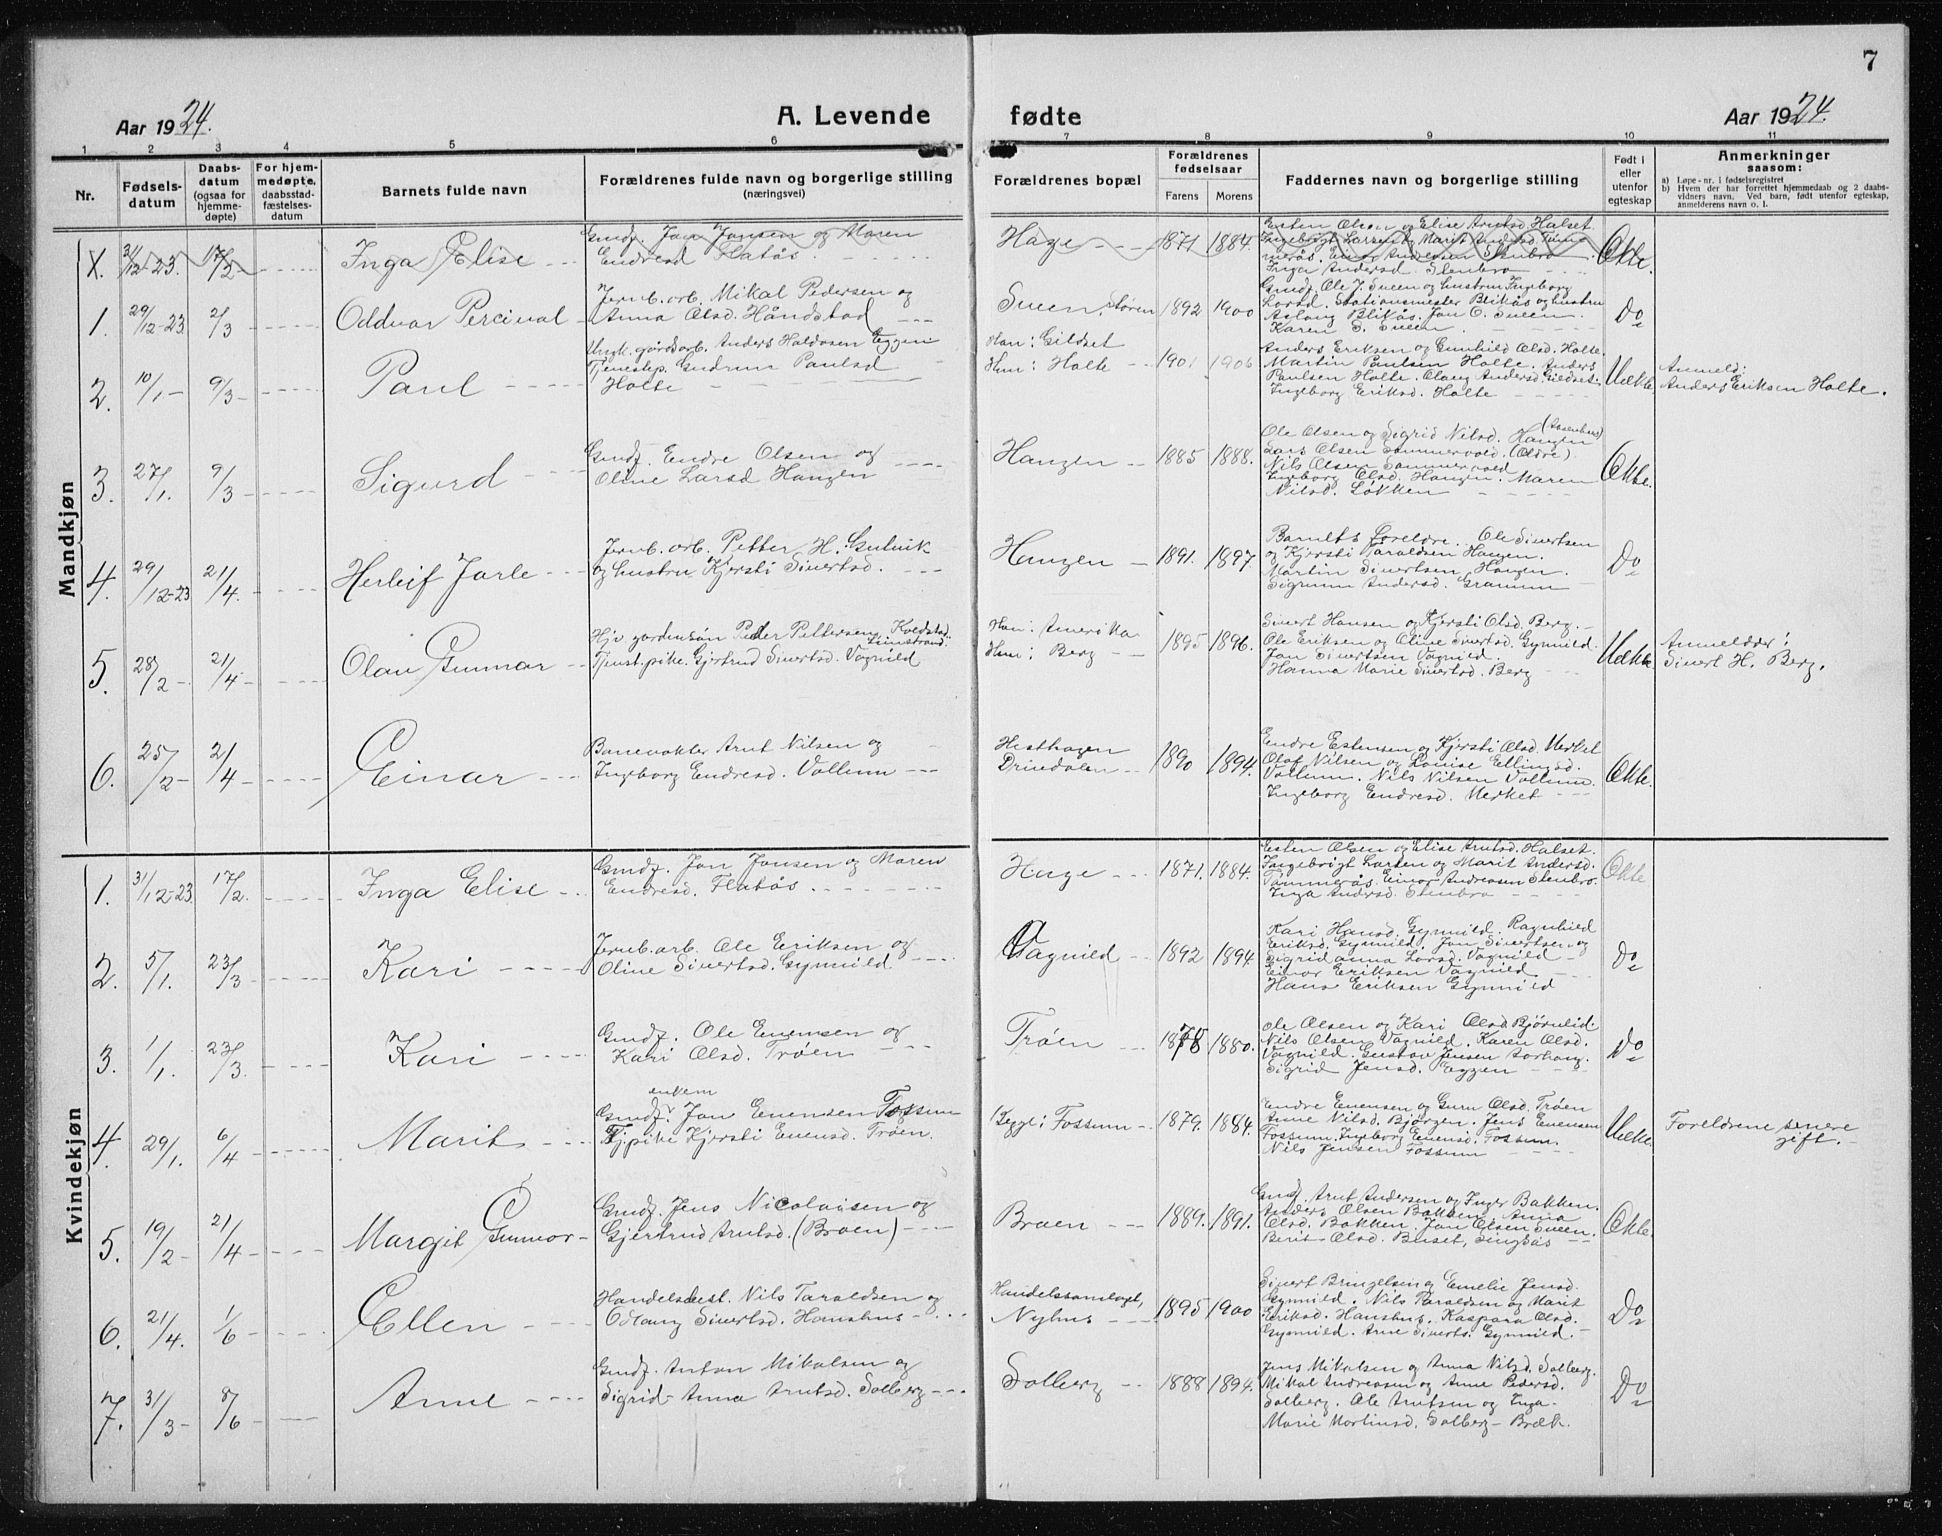 7
Aar 1924.
A. Levende fødte
Aar 1924.
1 2 3 4 5 6 7 8 9 10 11
Nr.
Fødsels-
datum
Daabs-
datum
(ogsaa for
hjemme-
døpte)
For hjem-
medøpte,
daabsstad-
fæstelses-
datum
Barnets fulde navn
Forældrenes fulde navn og borgerlige stilling
(næringsvei)
Forældrenes bopæl
Forældrenes
fødselsaar
Farens Morens
Faddernes navn og borgerlige stilling
Født i
eller
utenfor
egteskap
Anmerkninger
saasom:
a) Løpe-nr. i fødselsregistret
b) Hvem der har forrettet hjemmedaab og 2 daabs-
vidners navn. Ved barn, født utenfor egteskap,
anmelderens navn o. l.
Mandkjøn
X. 31/12-23. 17/2 Inga Elise
Gmdj. Jon Jonsen og Maren
Endresd Flatås
Hage 1871 1884.
Esten Olsen og Elise Arntsd Halset
Ingebrigt Larsen og Marit Andersd. Tam-
merås. Einar Andreasen Stenbro
Inga Andersd. Stenbro
Ekte.
1. 29/12-23 2/3 Oddvar Percival
Jernb. arb. Mikal Pedersen og
Anna Olsd. Håndstad
Sveen, Støren 1892 1900
Gmdj. Ole J. Sveen og hustru Ingeborg
Larsd. Stationsmester Blikås og hustru
Aslaug Blikås. Jon O. Sveen.
Karen S. Sveen.
Do
2. 10/1 9/3 Paul
Ungk. gårdsarb. Anders Haldosen Eggen
Tjenestep. Gudrun Paulsd
Holte
Han: Gildset
Hun: Holte 1901 1906
Anders Eriksen og Gunhild Olsd. Holte.
Martin Paulsen Holte. Anders
Paulsen Holte. Olaug Andersd. Gildset.
Ingeborg Eriksd. Holte
Uekte.
Anmeld:
Anders Eriksen Holte.
3. 27/1. 9/3 Sigurd
Gmdj. Endre Olsen og
Oline Larsd Haugen
Haugen 1885 1888.
Ole Olsen og Sigrid Nilsd. Haugen
Lars Olsen Sommervold. (Eldre)
Nils Olsen Sommervold
Ingeborg Olsd. Haugen. Maren
Nilsd. Løkken
Ekte.
4. 29/12-23 21/4. Herleif Jarle
Jernb. arb. Petter H. Gulvik
og hustru Kjersti Sivertsd.
Haugen 1891. 1897.
Barnets Foreldre. Ole Sivertsen
og Kjersti Taraldsen Haugen.
Martin Sivertsen Haugen.
Sigrunn Andersd. Gramm
Do
5. 28/2 21/4 Olav Gunnar
Peder Pettersen Koldstad
Tjenst. pike. Gjertrud Sivertsd. Vagnild
Han: Amerika
Hun: Berg 1895 1896.
Sivert Hansen og Kjersti Olsd. Berg.
Ole Eriksen og Oline Sivertsd. Gynnild.
Jon Sivertsen Vagnild.
Hanna Marie Sivertsd. Berg
Uekte.
Anmelder:
Sivert H. Berg.
6. 25/2 21/4 Einar
Banevokter Arnt Nilsen og
Ingeborg Endresd. Vollum
Hesthagen
Drivdalen 1890 1894.
Endre Estensen og Kjersti Olsd. Merket
Olaf Nilsen og Louise Ellingsd.
Vollum. Nils Nilsen Vollum.
Ingeborg Endresd. Merket
Ekte.
Kvindekjøn
1. 31/12-23. 17/2. Inga Elise
Gmdj. Jon Jonsen og Maren
Endresd. Flatås
Hage 1871. 1884.
Esten Olsen og Elise Arntsd. Halset.
Ingebrigt Larsen og Marit Andersd.
Tammerås. Einar Andreasen Stenbro.
Inga Andersd. Stenbro
Ekte
2. 5/1. 23/3 Kari
Jernb. arb. Ole Eriksen og
Oline Sivertsd. Gynnild
Vagnild 1892 1894.
Kari Hansd. Gynnild. Ragnhild
Eriksd. Gynnild. Jon Sivertsen og
Sigridanna Larsd. Vagnild
Einar Eriksen Vagnild
Hans Eriksen Gynnild
Do
3. 1/1. 23/3 Kari
Gmdj. Ole Evensen og
Kari Olsd. Trøen
Trøen 1878 1880.
Ole Olsen og Kari Olsd. Bjørnlid.
Nils Olsen Vagnild. Karen Olsd.
Vagnild. Gustav Jensen Aarhaug.
Sigrid Jensd. Eggen
Do
4. 29/1. 6/4 Marit
enkem
Gmdj. Jon Evensen Fossum
Tj.pike Kjersti Evensd. Trøen.
Begge: Fossum 1879. 1884.
Endre Evensen og Guru Olsd. Trøen
Anne Nilsd. Bjørgen. Jens Evensen
Fossum. Ingeborg Evensd. Fossum.
Nils Jensen Fossum
Uekte.
Foreldrene senere
gift.
5. 19/2 21/4 Margit Gunvor
Gmdj. Jens Nicolaisen og
Gjertrud Arntsd. (Broen)
Broen 1889. 1891.
Gmdj. Arnt Andersen og Inger Bakken.
Anders Olsen Bakken. Anna
Olsd. Bakken. Jon Olsen Sveen.
Berit Olsd. Buset, Singsås
Ekte.
6. 21/4. 1/6 Ellen
Handelsbest. Nils Taraldsen og
Odlaug Sivertsd. Hanshus
Handelssamlaget,
Nyhus 1895 1900
Sivert Bringelsen og Emelie Jensd.
Gynnild. Nils Taraldsen og Marit
Eriksd. Hanshus. Kaspara Olsd.
Gynnild. Arne Siverts. Gynnild.
Do
7. 31/3 8/6 Anne
Gmdj. Anton Mikalsen og
Sigrid Anna Arntsd. Solberg
Solberg 1888 1894.
Jens Mikalsen og Anna Nilsd. Solberg.
Mikal Andreasen og Anne Pedersd.
Solberg. Ole Arntsen og Inga
Marie Martinsd. Solberg - Bræk.
Do